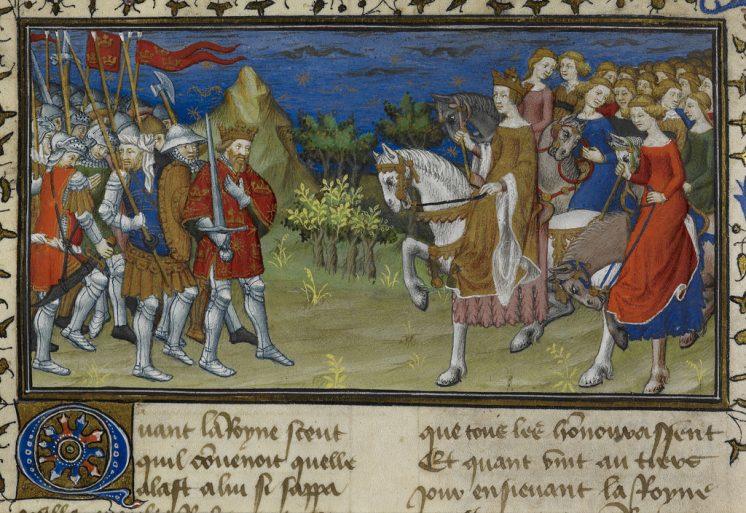 Quant la Royne sceut
quil cōuenoit quelle
alast a lui si sappa
que tous les honnourassent
Et quant vīt au tiers
jour ensieuant la Royne